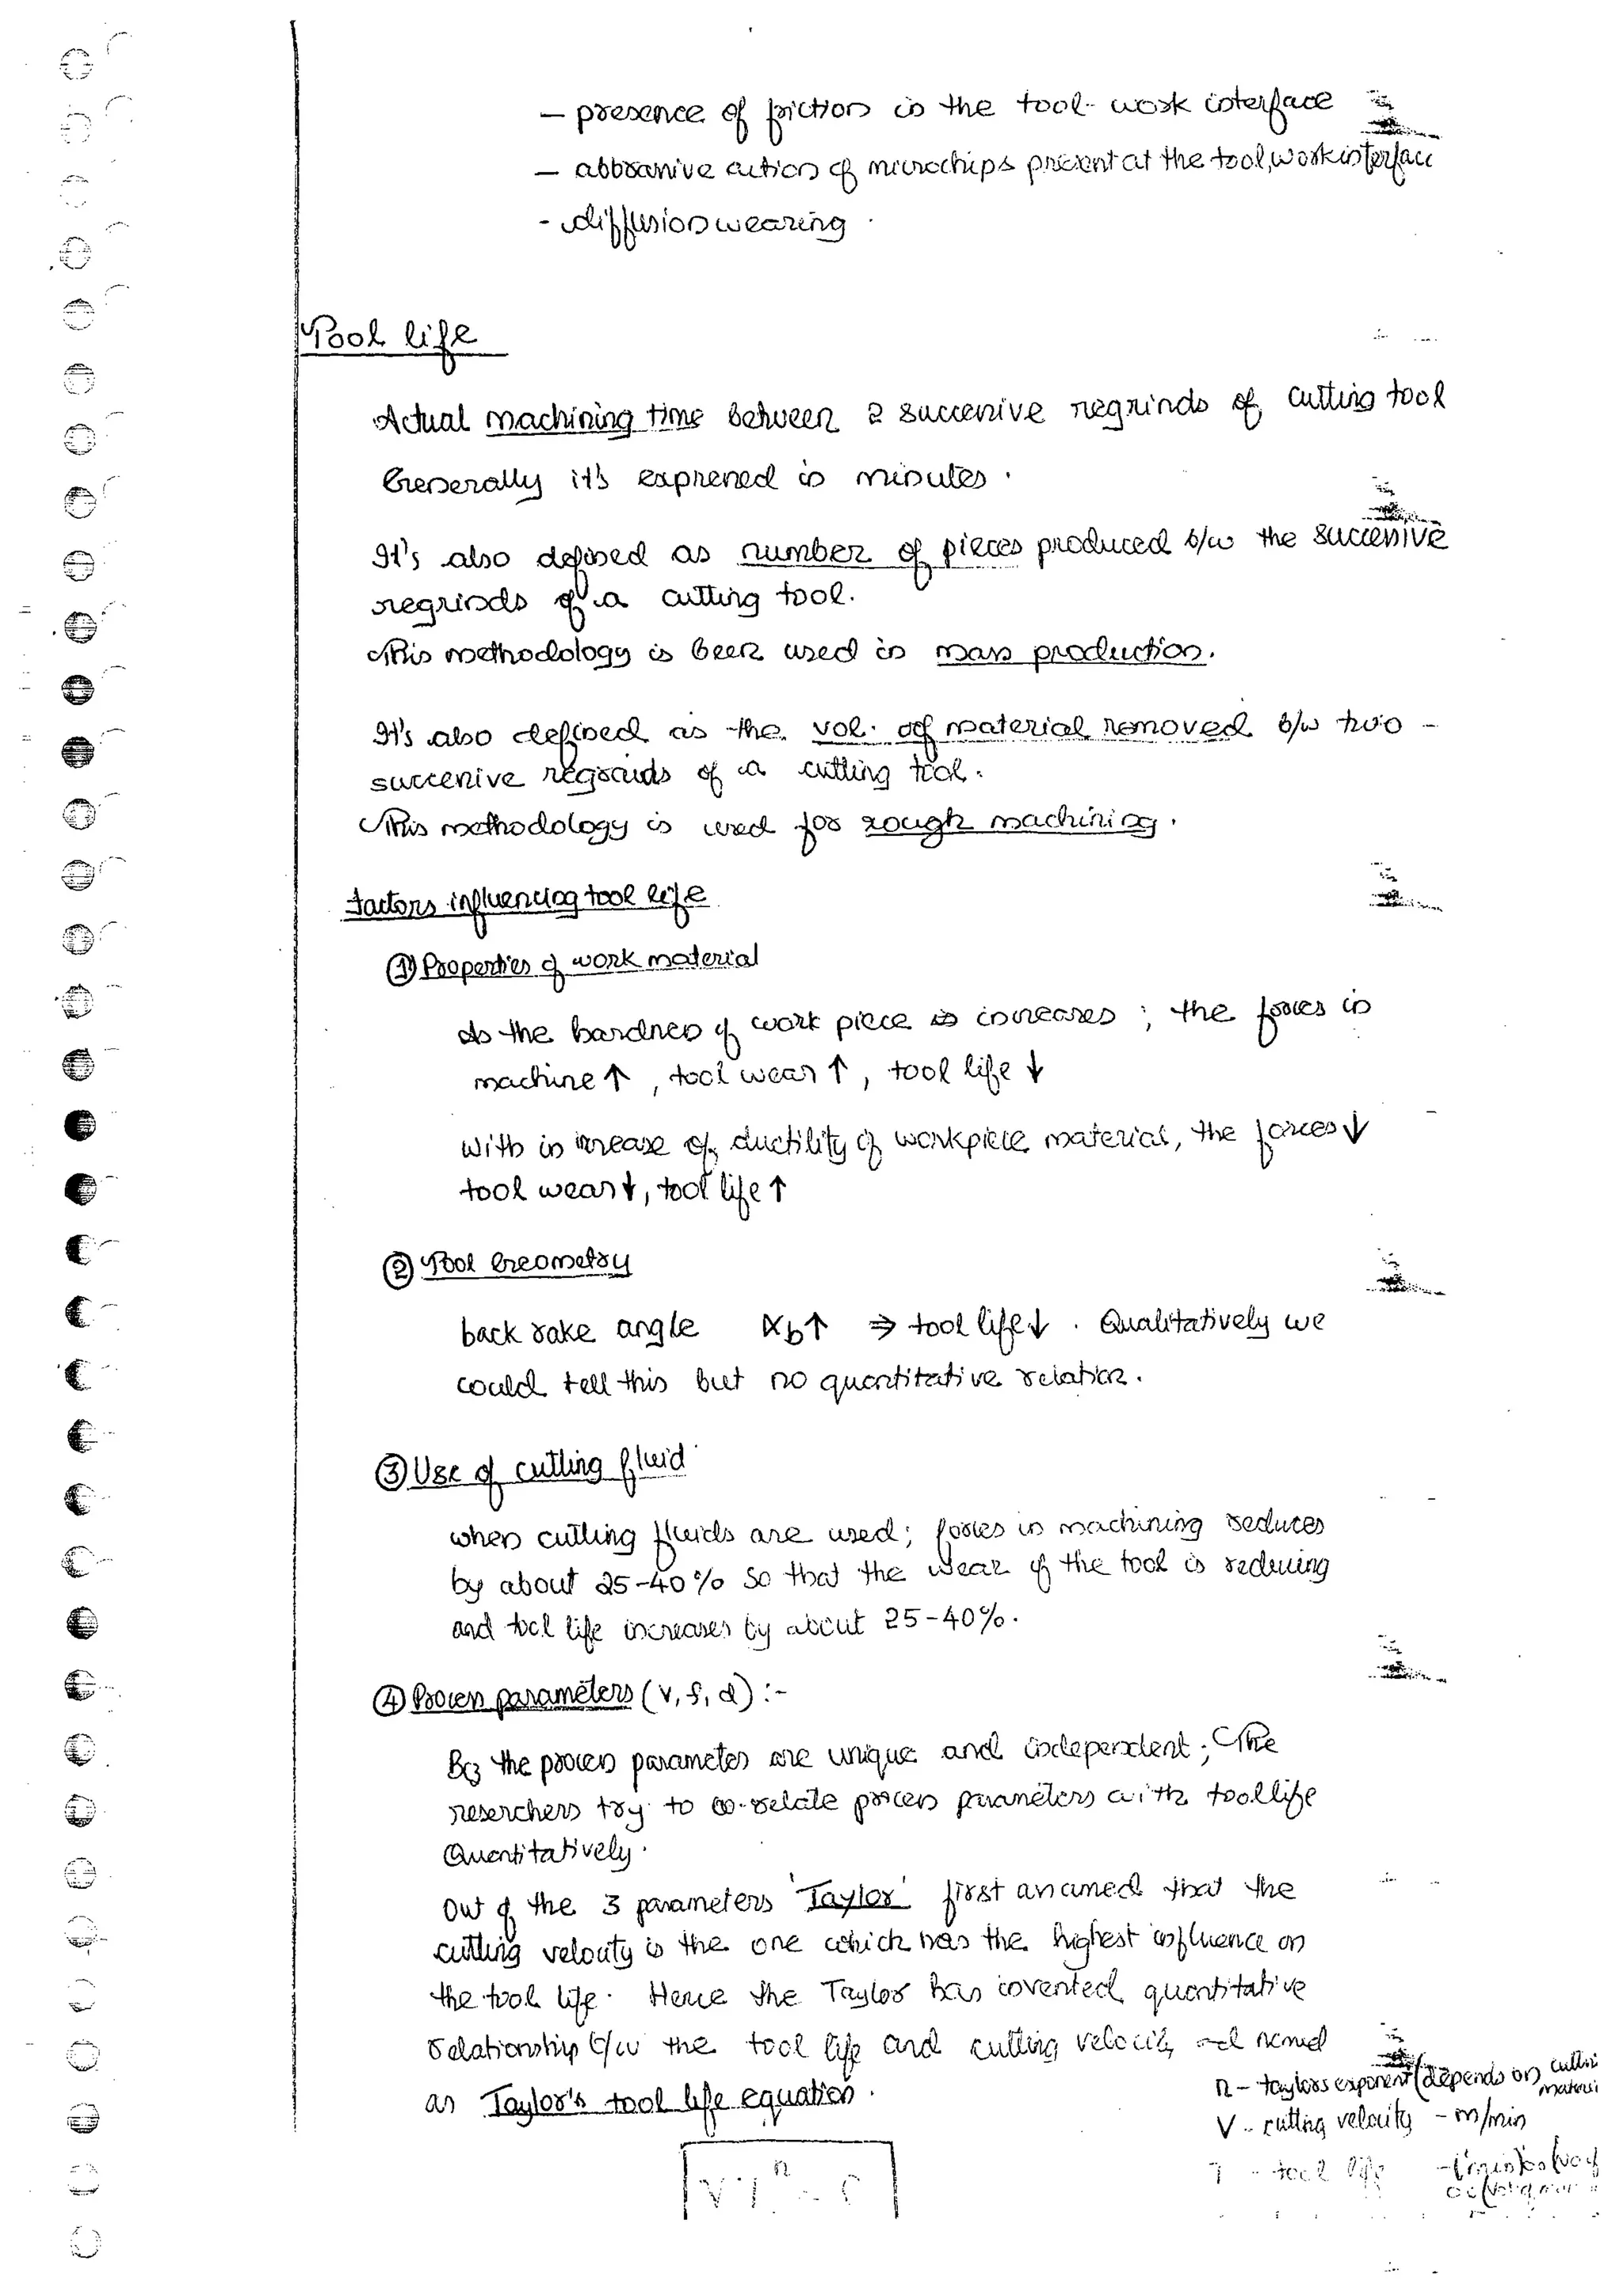 – presence of friction in the tool-work interface
– abbrasive action of microchips present at the tool, work interface
- diffusion wearing.
Tool life
Actual machining time between 2 successive regrinds of cutting tool
Generally it's expressed in minutes.
It's also defined as number of pieces produced b/w the successive
regrinds of a cutting tool.
This methodology is been used in mass production.
It's also defined as the vol. of material removed b/w two -
successive regrids of a cutting tool.
This methodology is used for rough machining.
Factors influencing tool life
① Properties of work material
As the hardness of work piece is increases ; the forces in
machine ↑ , tool wear ↑ , tool life ↓
with in increase of ductility of workpiece material, the forces ↓
tool wear ↓, tool life ↑
② Tool Geometry
back rake angle αb↑ ⇒ tool life ↓ . Qualitatively we
could tell this but no quantitative relation.
③ Use of cutting fluid
when cutting fluids are used; forces in machining reduces
by about 25-40% so that the wear of the tool is reducing
and tool life increases by about 25-40%.
④ Process parameters (v, f, d) :-
Bcz the process parameters are unique and independent; The
reserchers try to co-relate process parameters with tool life
Quantitatively.
out of the 3 parameters 'Taylor' first assumed that the
cutting velocity is the one which has the highest influence on
the tool life. Hence the Taylor has invented quantitative
relationship b/w the tool life and cutting velocity and named
as Taylor's tool life equation.
n – taylors exponent (depends on cutting
V – cutting velocity – m/min
VTⁿ = C
T - tool life